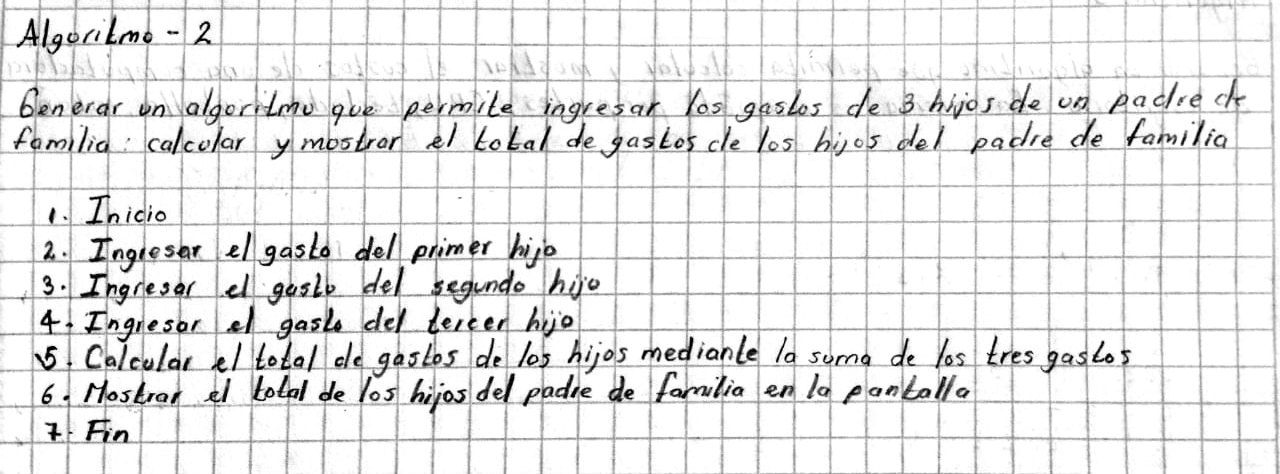 Algoritmo - 2
Generar un algoritmo que permite ingresar los gastos de 3 hijos de un padre de
familia: calcular y mostrar el total de gastos de los hijos del padre de familia
1. Inicio
2. Ingresar el gasto del primer hijo
3. Ingresar el gasto del segundo hijo
4. Ingresar el gasto del tercer hijo
5. Calcular el total de gastos de los hijos mediante la suma de los tres gastos
6. Mostrar el total de los hijos del padre de familia en la pantalla
7. Fin